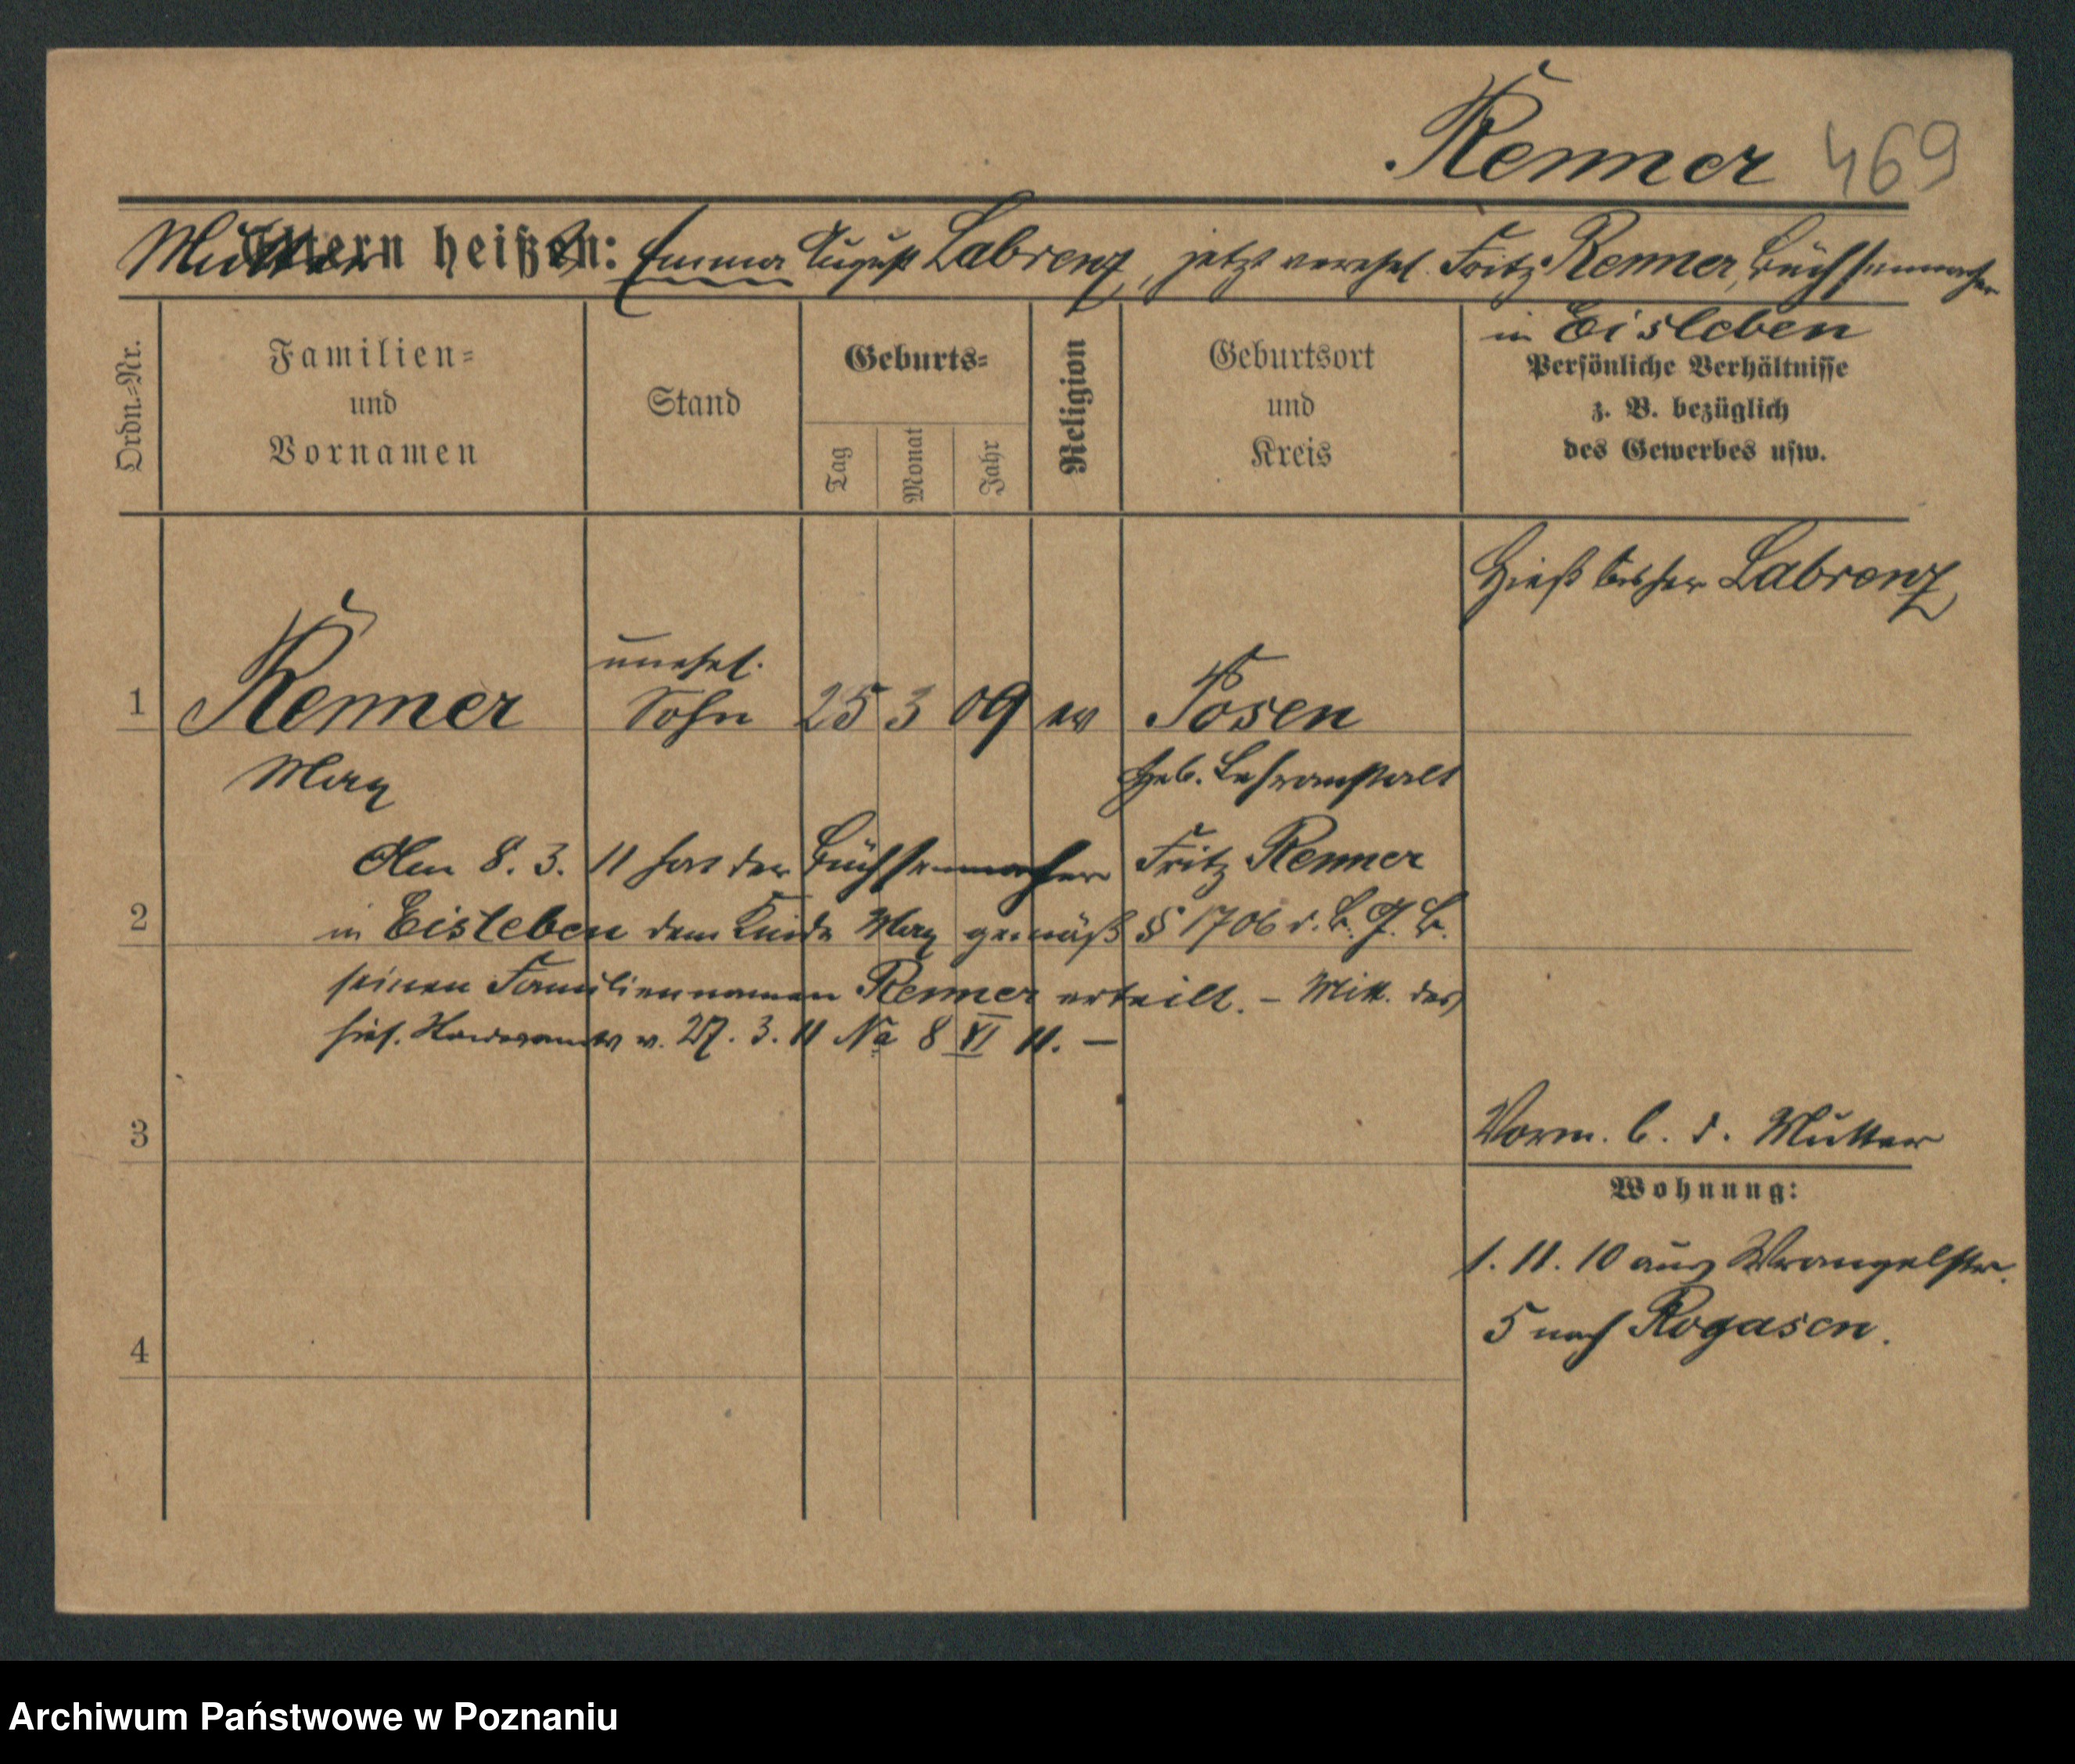 Renner 469
Mutter heißt: Emma August Labrenz, jetzt verehel. Fritz Renner, Büchsenmacher
in Eisleben
Ordn.=Nr.
Familien=
und
Vornamen
Stand
Geburts=
Tag
Monat
Jahr
Religion
Geburtsort
und
Kreis
Persönliche Verhältnisse
z. B. bezüglich
des Gewerbes usw.
Hieß bisher Labrenz
unehel.
1 Renner Sohn 25 3 09 ev Posen
Max Heb. Lehranstalt
Am 8. 3. 11 hat der Büchsenmacher Fritz Renner
2 in Eisleben dem Kinde Max gemäß § 1706 d. B. G. B.
seinen Familiennamen Renner erteilt. – Mitt. des
hies. Standesamts v. 27. 3. 11 Na 8 VI 11. –
3
Vorm. b. d. Mutter
Wohnung:
1. 11. 10 aus Wrangelstr.
5 nach Rogasen.
4
Archiwum Państwowe w Poznaniu